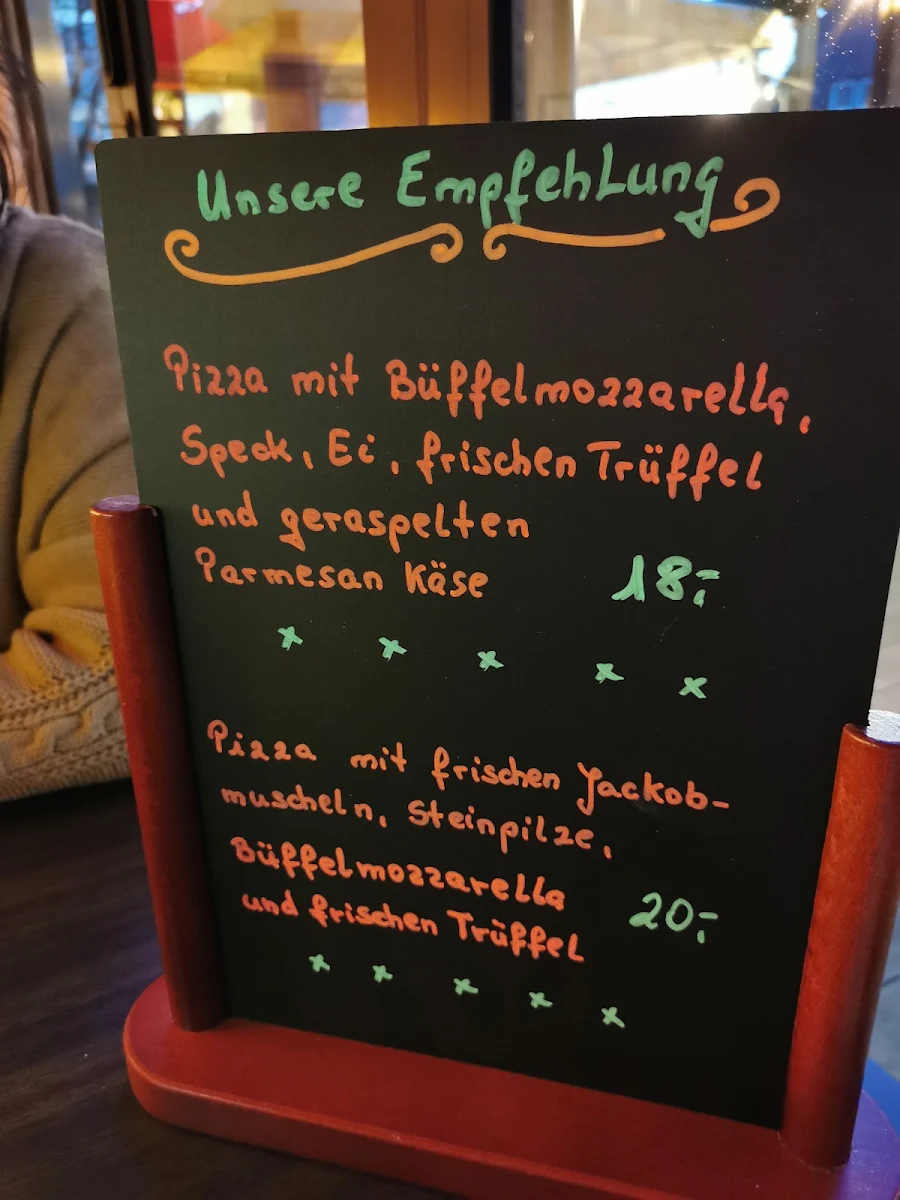 Unsere Empfehlung
Pizza mit Büffelmozzarella,
Speck, Ei, frischen Trüffel
und geraspelten
Parmesan Käse 18,-
Pizza mit frischen Jackob-
muscheln, Steinpilze,
Büffelmozzarella
und frischen Trüffel 20,-